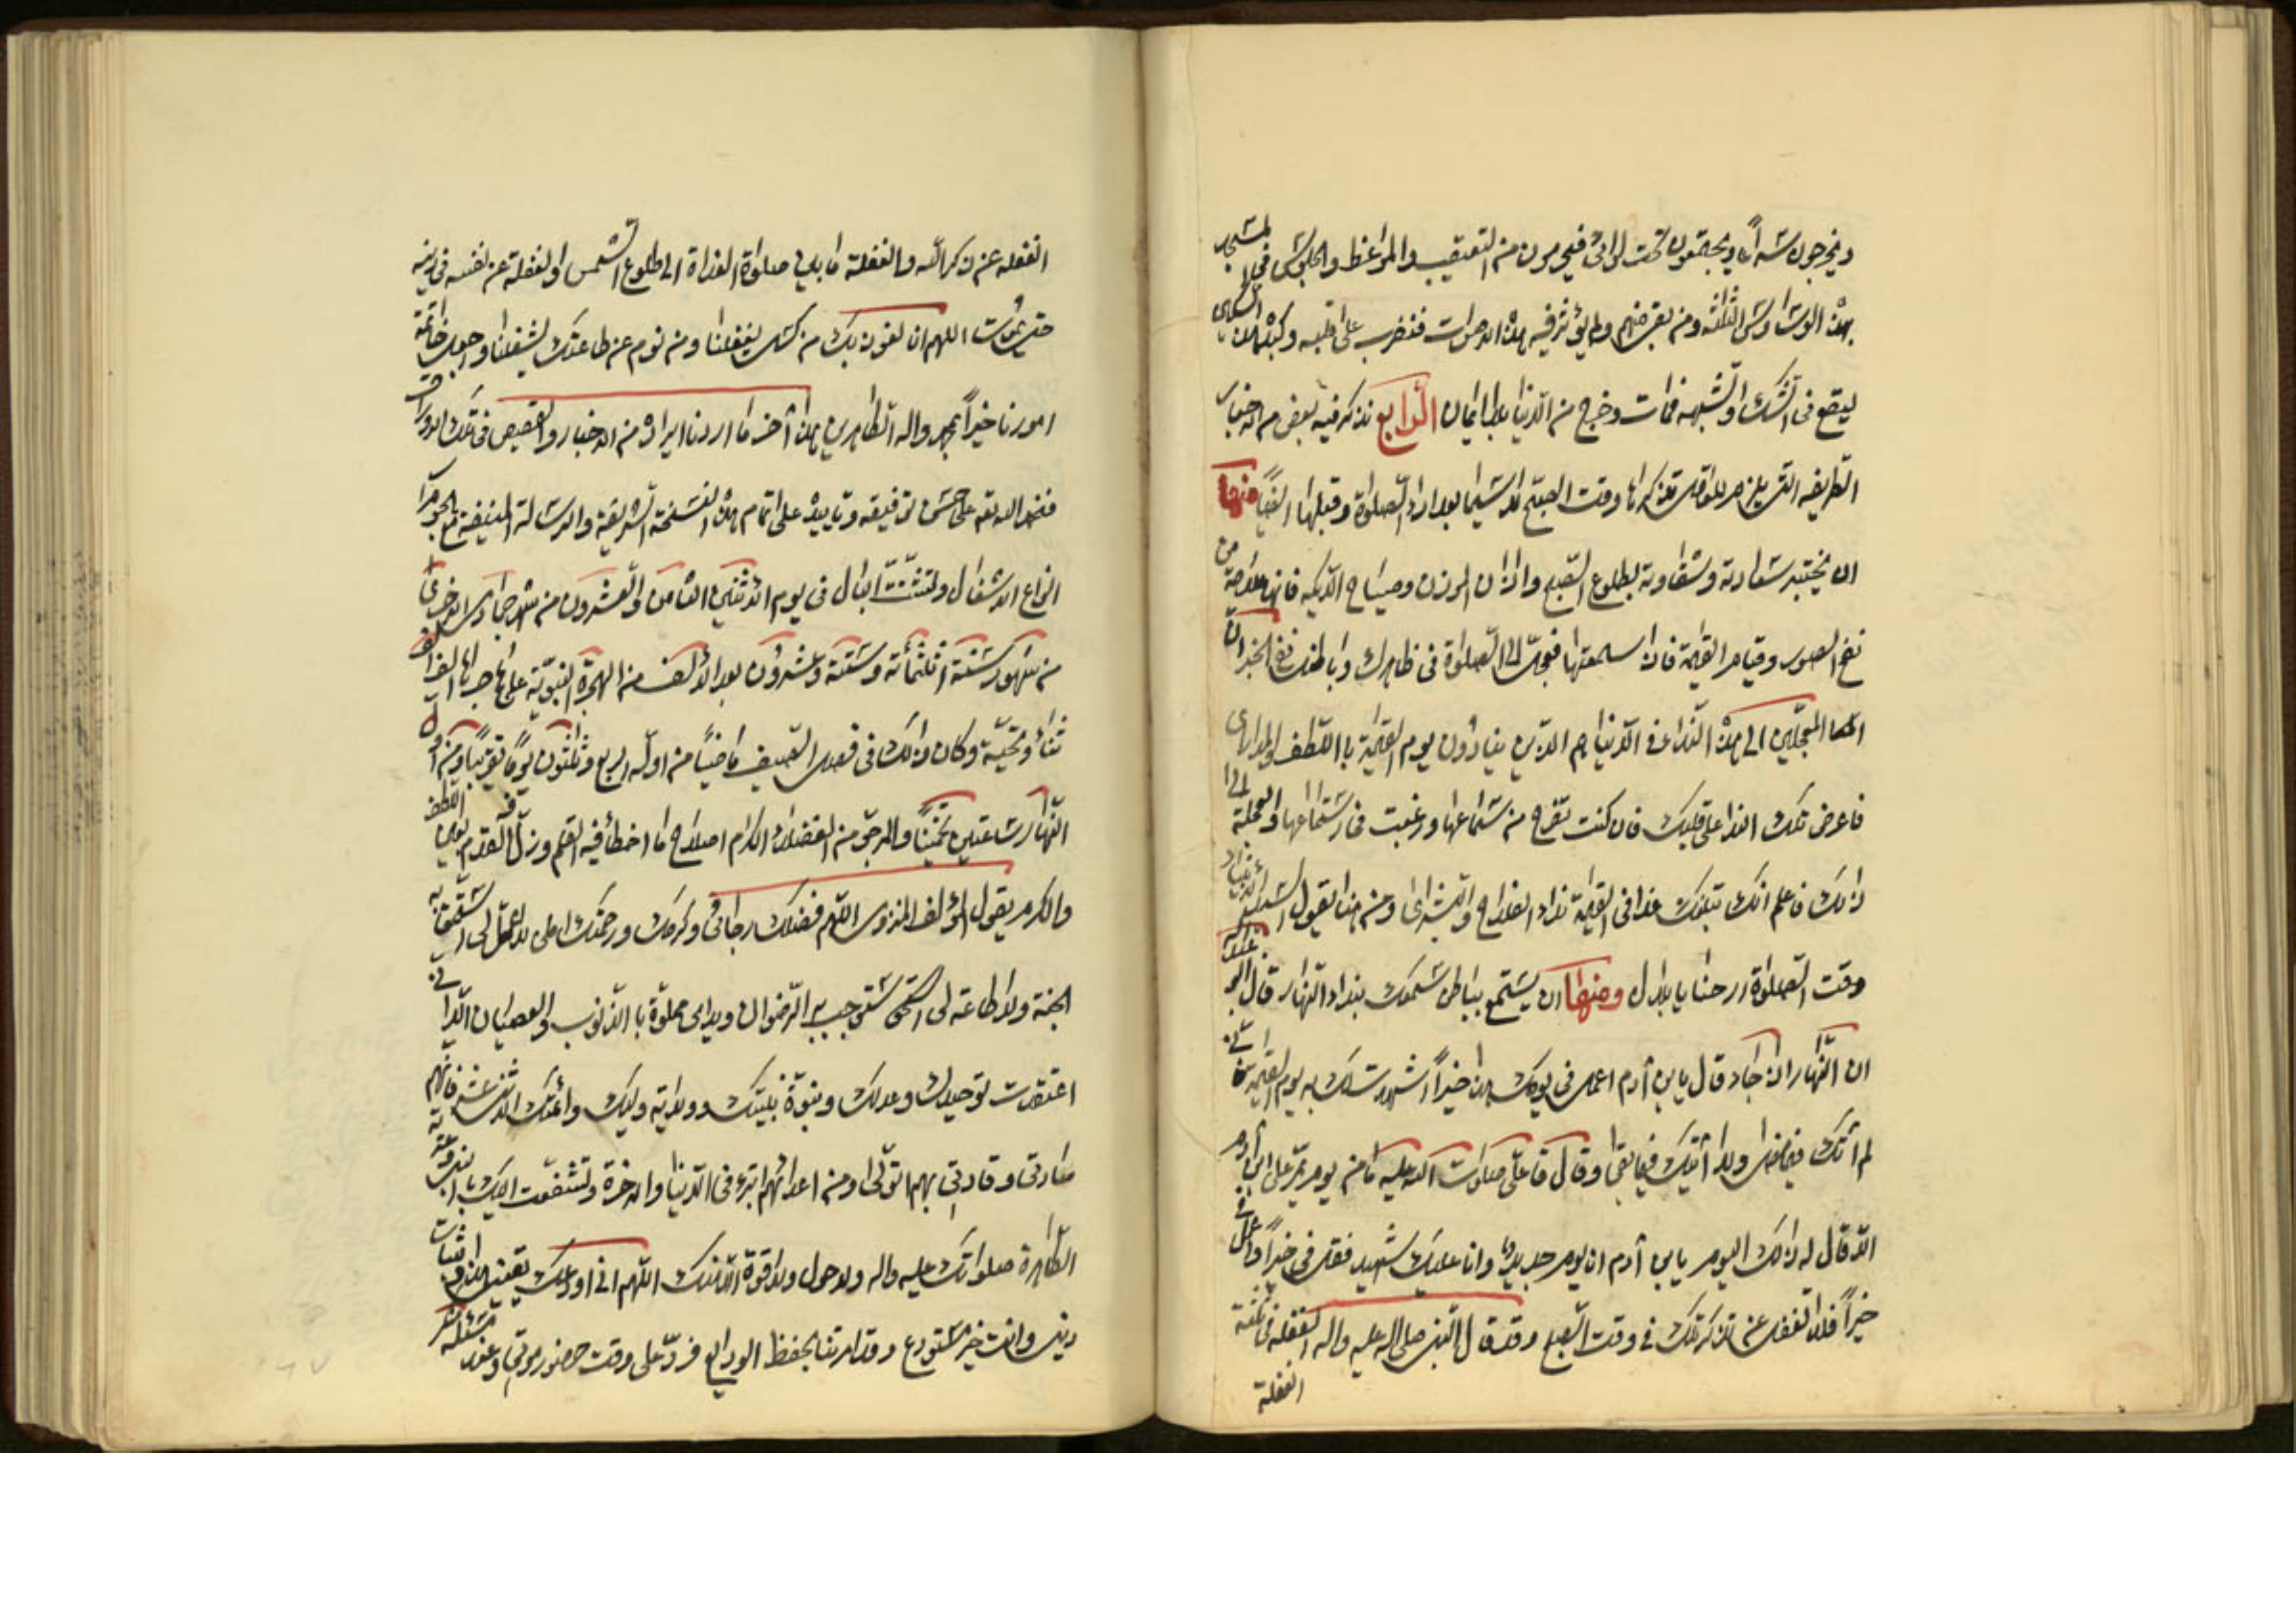 ويخرجون شيئا ويجتمعون تحت لوائي فيحرمون من التعقيب والمواعظ والجلوس في المسجد
بهذه الوساوس الثلثة ومن بعضهم ولم يؤثر فيه هذه الاصوات فتضرب على قلبه
ليقع في الشك والشبهة فمات وخرج من الدنيا بلا ايمان الرابع نذكر فيه بعض من الاخبار
الطريفه التي يلزم للمؤمن تذكرها وقت الصبح لا سيما بعد اداء الصلوة وقبلها ايضا منها
ان يختبر سعادته وشقاوته بطلوع الصبح واذان الموذن وصياح الديكة فانها علامة من
نفخ الصور وقيام القيمة فاذا سمعتها فعجل الى الصلوة في ظاهرك وباطنك ففي الخبر ان
المعجلين الى هذه النداء في الدنيا هم الذين ينادون يوم القيمة باللطف
فاعرض تلك النداء على قلبك فان كنت تفرح من استماعها ورغبت في استماعها والعجلة الى
ذلك فاعلم انك تبلغك غدا في القيمة نداء الفلاح والبشرى ومن هنا يقول سيد الانبياء
وقت الصلوة ارحنا يا بلال ومنها ان يستمع بباطن سمعك بنداء النهار قال ابو عبد الله
ان النهار اذا جاء قال يابن آدم اعمل في يومك هذا خيرا اشهد لك به يوم القيمة فاني
لم آتك فيما مضى ولا آتيك فيما بقى وقال قال علي صلوات الله عليه ما من يوم يمر على ابن آدم
الا قال له ذلك اليوم يابن آدم انا يوم جديد وانا عليك شهيد فقل في خيرا واعمل في
خيرا فلا تغفل عن تذكر ذلك في وقت الصبح وقد قال النبي صلى الله عليه واله الغفلة في ثلثة
الغفلة
الغفلة عن ذكر الله والغفلة ما بين صلوة الغداة الى طلوع الشمس والغفلة عن نفسه في دينه
حتى يموت اللهم انا نعوذ بك من كسل يغفلنا ومن نوم عن طاعتك يشغلنا واجعل خاتمة
امورنا خيرا بمحمد واله الطاهرين هذا آخر ما اردنا ايراده من الاخبار والقصص في تلك الاوراق
فنحمد الله تعالى على حسن توفيقه وتاييده على اتمام هذه النسخة الشريفة والرسالة المنيفة مع
انواع الاشغال وتشتت البال في يوم الاثنين الثامن والعشرون من شهر جمادى الاخرى
من شهور سنة ثلثمائة وستة وعشرون بعد الالف من الهجرة النبوية على هاجرها الف
ثناء وتحية وكان ذلك في فصل الصيف ماضيا من اوله اربع وثلثون يوما تقريبا ومن اول
النهار ساعتين تخمينا والمرجو من الفضلاء الكرام اصلاح ما اخطأ فيه القلم وزل القدم بعين اللطف
والكرم يقول المؤلف المنزوي اللهم فضلك رجائي وكرمك ورحمتك املي لا عمل لي استحق به
الجنة ولا طاعة لي استوجب بها الرضوان ويداى مملوة بالذنوب والعصيان الا اني
اعتقدت توحيدك وعدلك ونبوة نبيك وولاية وليك وائمتك الاثنى عشر فانهم
سادتي وقادتي بهم اتولى ومن اعدائهم اتبرء في الدنيا والاخرة وتشفعت اليك بالنبي وعترته
الطاهرة صلواتك عليه واله ولا حول ولا قوة الا بك اللهم اني اودعك يقيني هذا وثبات
ديني وانت خير مستودع وقد امرتنا بحفظ الودايع فرده على وقت حضور موتي وعند مسئلة منكر